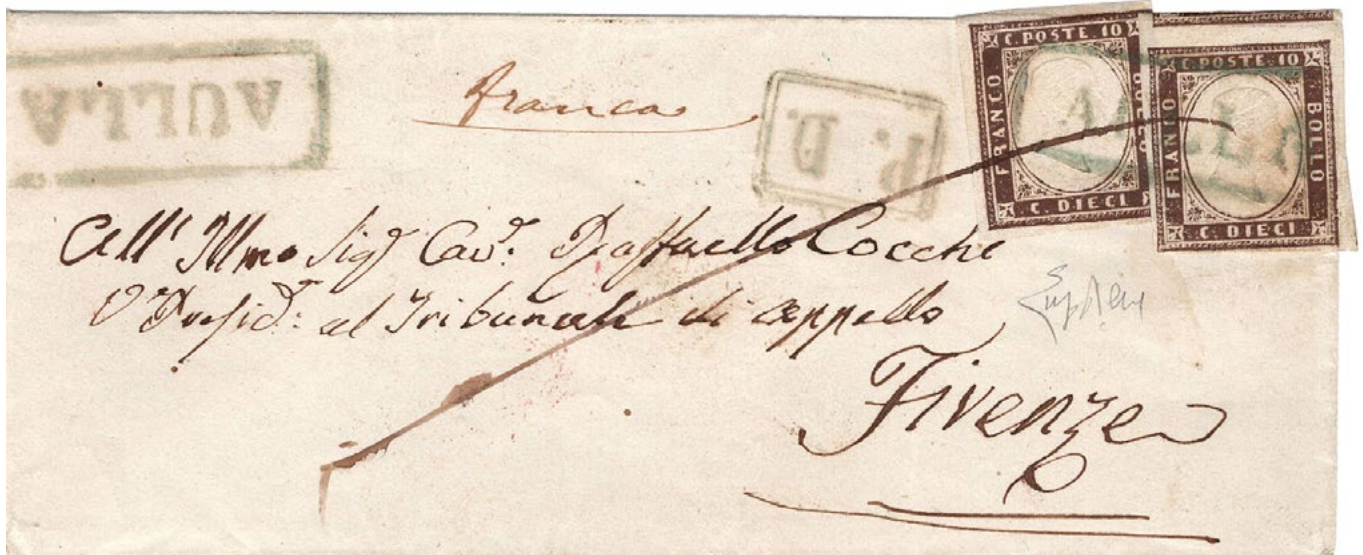 AULLA
franca
P. D.
C. POSTE. 10
FRANCO
BOLLO
C. DIECI
C. POSTE. 10
FRANCO
BOLLO
C. DIECI
AULLA
All' Illmo Sigr Cavr: Raffaello Cocchi
V Presidr: al Tribunale di Appello
Firenze